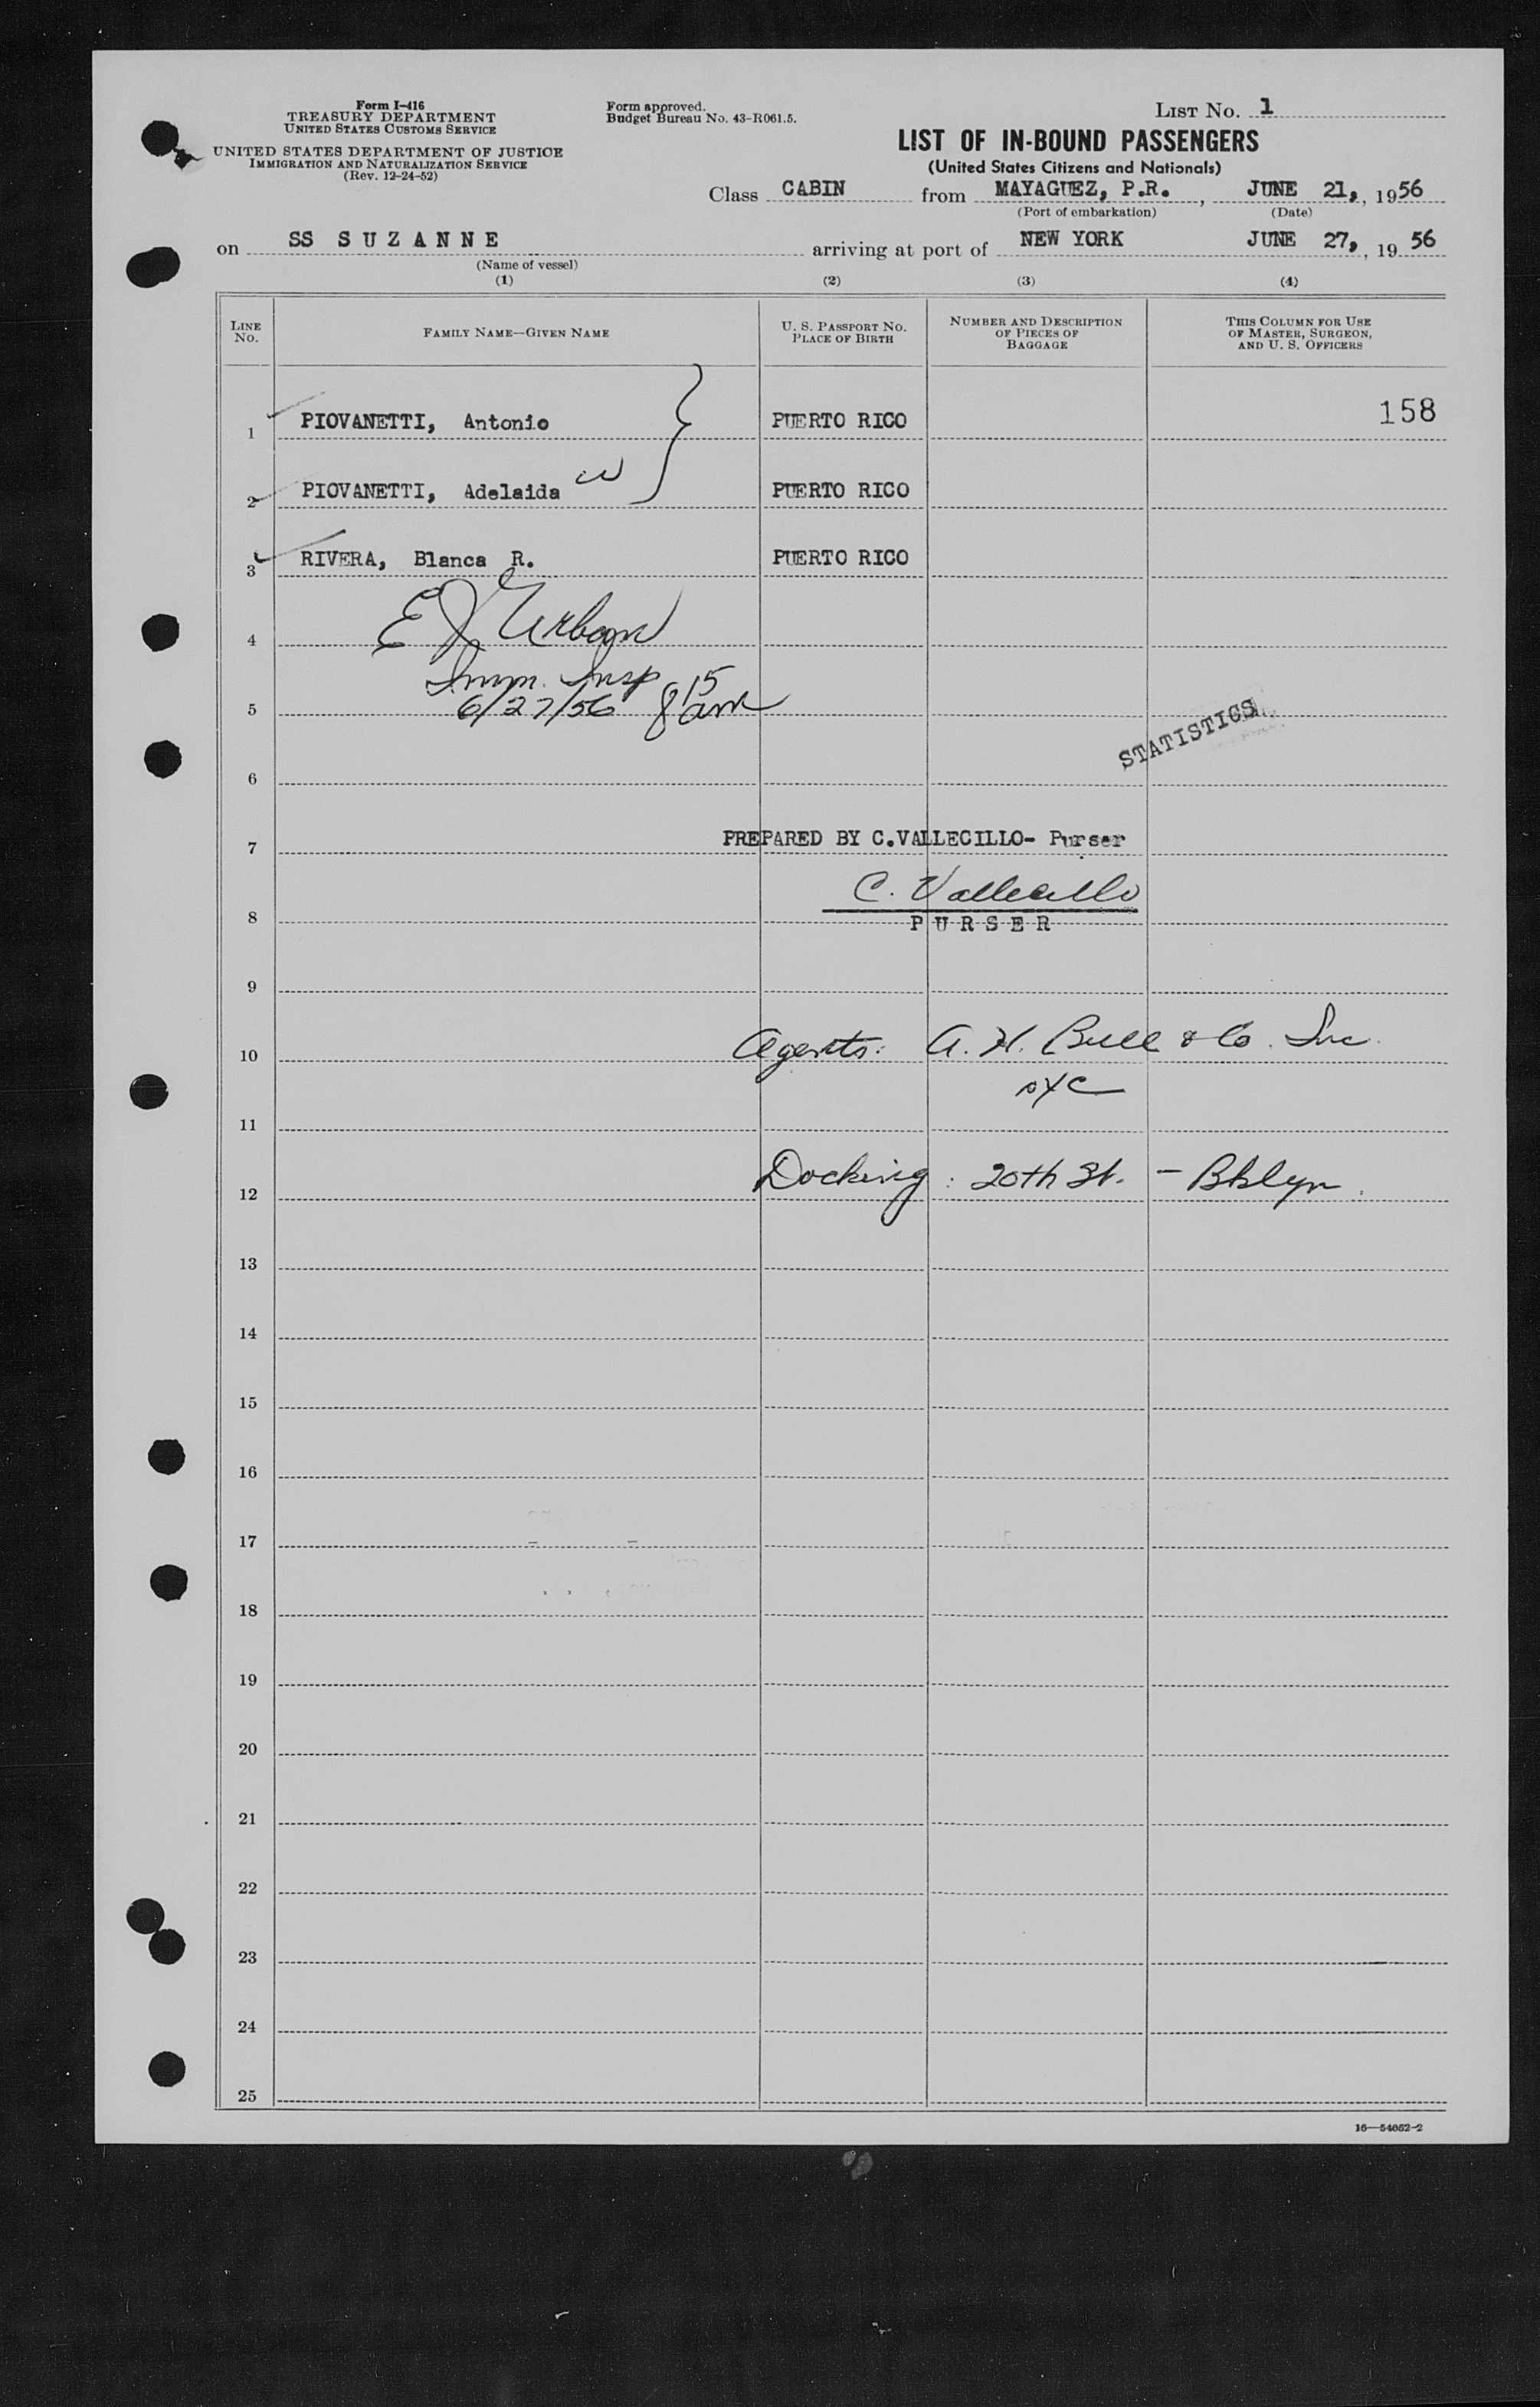 Form I-416
TREASURY DEPARTMENT
UNITED STATES CUSTOMS SERVICE
UNITED STATES DEPARTMENT OF JUSTICE
IMMIGRATION AND NATURALIZATION SERVICE
(Rev. 12-24-52)
Form approved.
Budget Bureau No. 43-R061.5.
LIST NO. 1
LIST OF IN-BOUND PASSENGERS
(United States Citizens and Nationals)
Class CABIN from MAYAGUEZ, P.R., JUNE 21, 1956
(Port of embarkation) (Date)
on SS SUZANNE arriving at port of NEW YORK JUNE 27, 1956
(Name of vessel)
(1) (2) (3) (4)
LINE NO. FAMILY NAME—GIVEN NAME U. S. PASSPORT NO. PLACE OF BIRTH NUMBER AND DESCRIPTION OF PIECES OF BAGGAGE THIS COLUMN FOR USE OF MASTER, SURGEON, AND U. S. OFFICERS
1 PIOVANETTI, Antonio PUERTO RICO 158
2 PIOVANETTI, Adelaida PUERTO RICO
3 RIVERA, Blanca R. PUERTO RICO
4 E J Urban
Imm. Insp
5 6/27/56 8 15 am
STATISTICS
6
7 PREPARED BY C.VALLECILLO- Purser
C. Vallecillo
8 PURSER
9
10 Agents: A. H. Bull & Co. Inc.
NYC
11
12 Docking: 20th St. - Bklyn.
13
14
15
16
17
18
19
20
21
22
23
24
25
16—54052-2